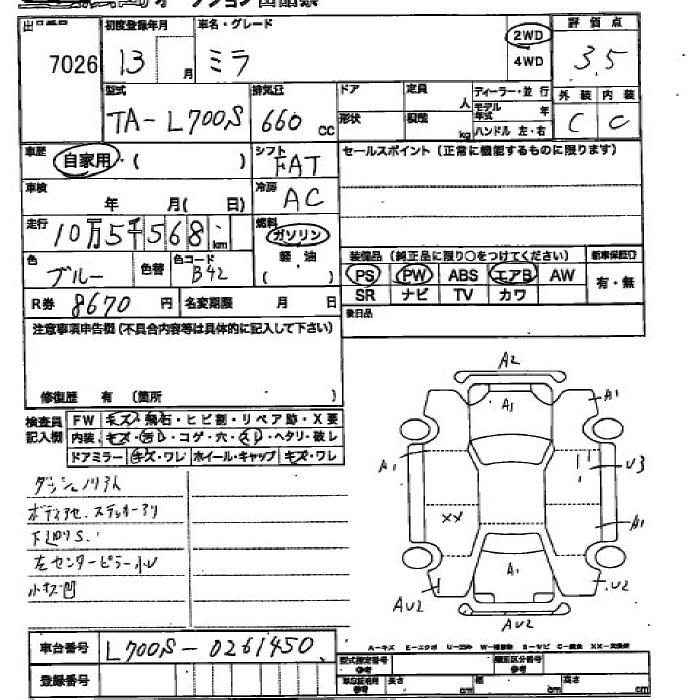 出品番号 7026
初度登録年月 13 月
車名・グレード ミラ
2WD
4WD
評価点 3.5
型式 TA-L700S
排気量 660 cc
ドア
形状
定員 人
積載 kg
ディーラー・並 行
モデル年式 年
ハンドル 左・右
外装 C
内装 C
車歴 自家用・( )
シフト FAT
セールスポイント (正常に機能するものに限ります)
車検 年 月( 日)
冷房 AC
走行 10万5千568 km
燃料 ガソリン
軽 油
( )
色 ブルー
色替
色コード B42
装備品 (純正品に限り○をつけてください)
新車保証書
PS PW ABS エアB AW
有・無
SR ナビ TV カワ
R券 8670 円
名変期限 月 日
後日品
注意事項申告欄(不具合内容等は具体的に記入して下さい)
修復歴 有 (箇所 )
検査員記入欄
FW キズ・飛石・ヒビ割・リペア跡・X要
内装 キズ・汚レ・コゲ・穴・スレ・ヘタリ・破レ
ドアミラー キズ・ワレ ホイール・キャップ キズ・ワレ
ボディアセ.ステッカーアリ
下廻りS.
左センターピラー小U
小キズ凹
A2
A1
A1
A1
U3
XX
A1
A1
AU2
U2
AU2
車台番号 L700S-0261450
A-キズ E-エクボ U-凹み W-補修跡 S-サビ C-腐食 XX-交換済
登録番号
型式指定番号 参考
類別区分番号 参考
車庫証明用 参考
長さ cm
幅 cm
高さ cm